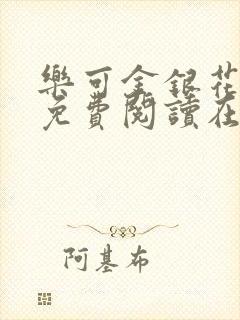 樂可金銀花
免費閱讀在
阿基布